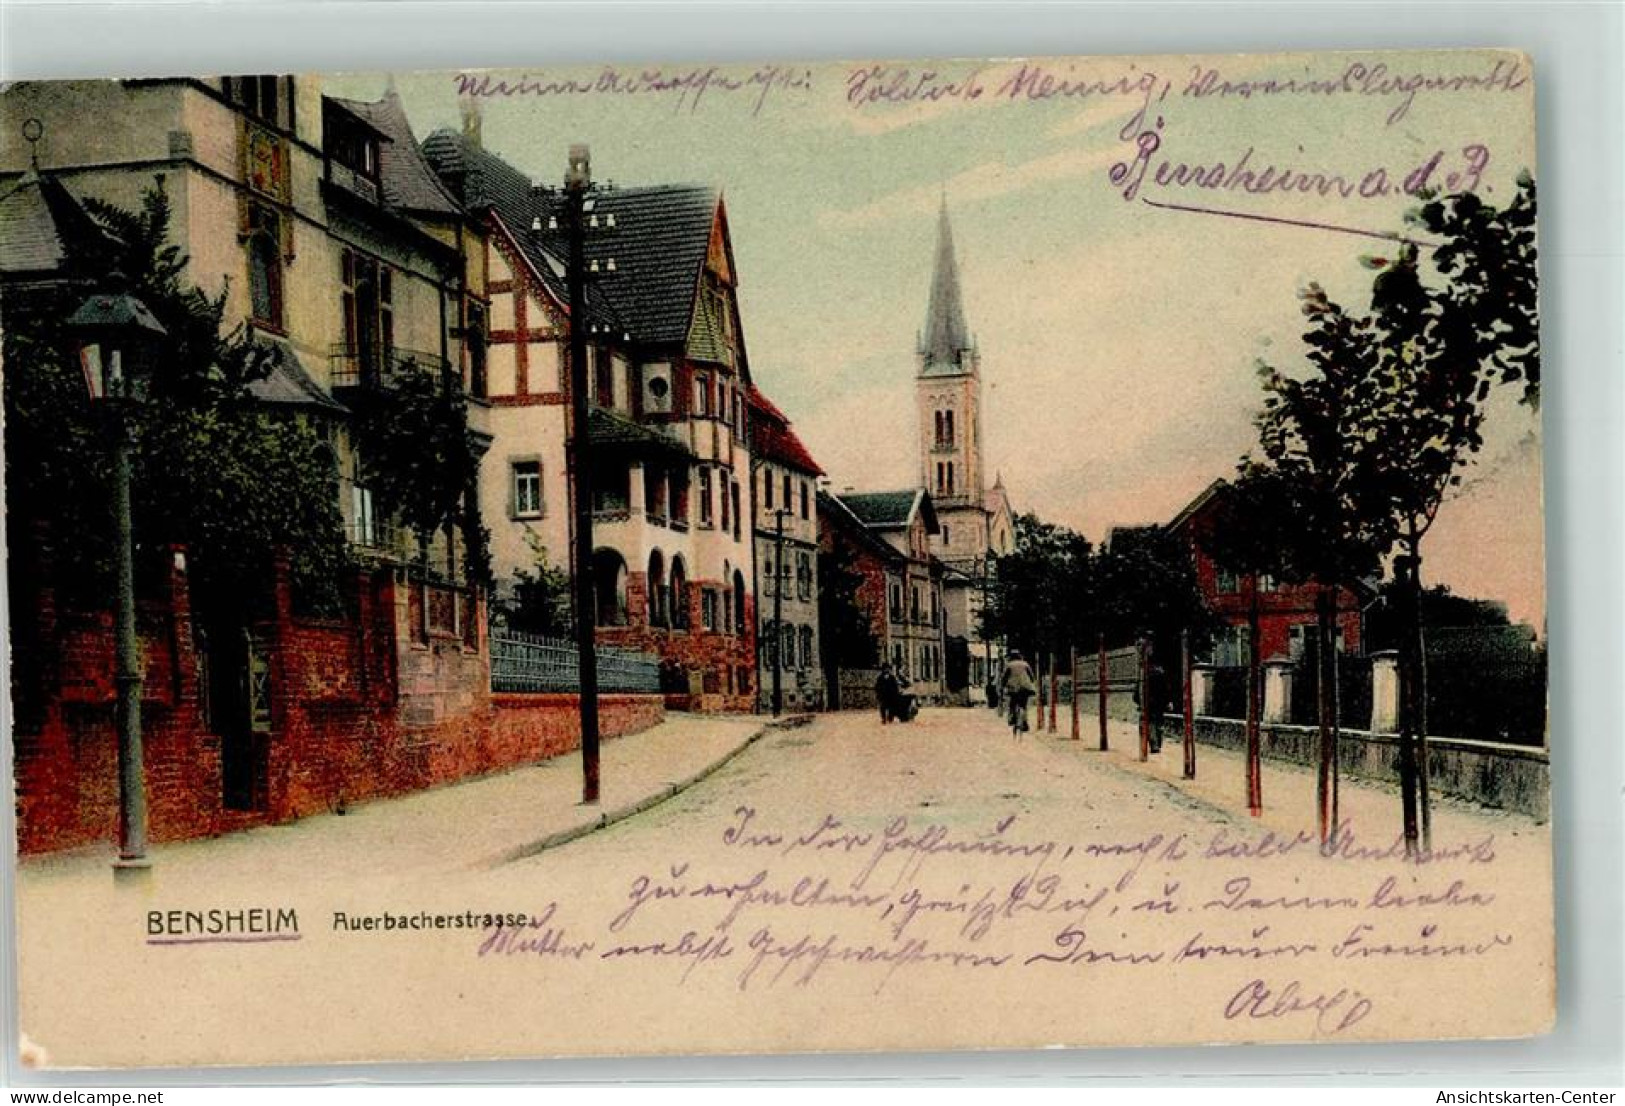 Meine Adresse ist: Soldat Meinig, Vereinslazarett
Bensheim a. d. B.
In der Hoffnung, recht bald Antwort
zu erhalten, grüßt Dich, u. Deine liebe
BENSHEIM Auerbacherstrasse.
Mutter nebst Geschwistern Dein treuer Freund
Ansichtskarten-Center
delcampe.net